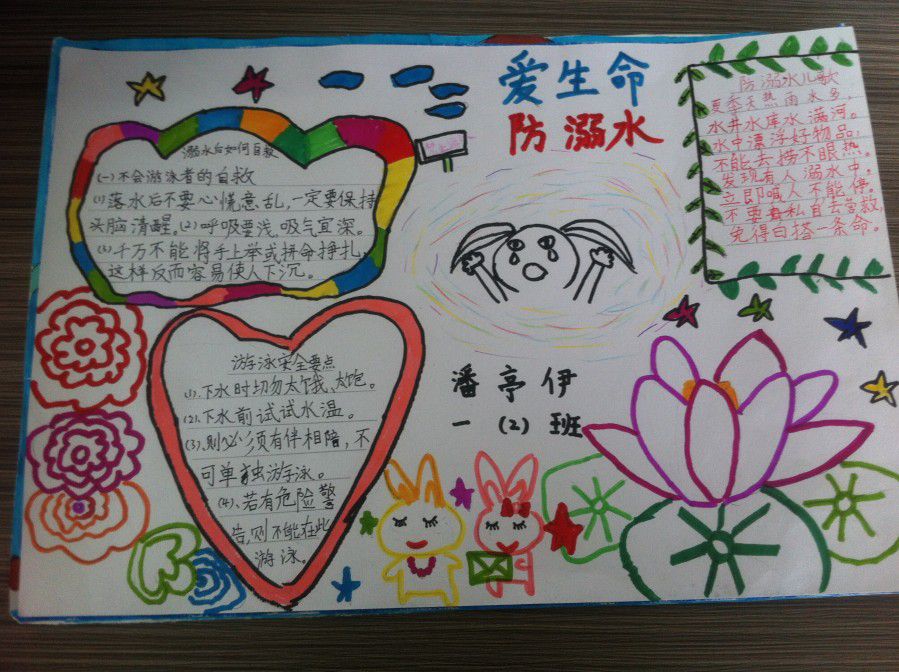 爱生命
防溺水
溺水后如何自救
(一)不会游泳者的自救
(1)落水后不要心慌意乱,一定要保持
头脑清醒。(2)呼吸要浅,吸气宜深。
(3)千万不能将手上举或拼命挣扎,
这样反而容易使人下沉。
防溺水儿歌
夏季天热雨水多,
水井水库水满河。
水中漂浮好物品,
不能去捞不眼热。
发现有人溺水中,
立即喊人不能停。
不要私自去营救,
免得白搭一条命。
游泳安全要点
(1)、下水时切勿太饿、太饱。
(2)、下水前试试水温。
(3)、则必须有伴相陪,不
可单独游泳。
(4)、若有危险警
告,则不能在此
游泳。
潘亭伊
一(2)班